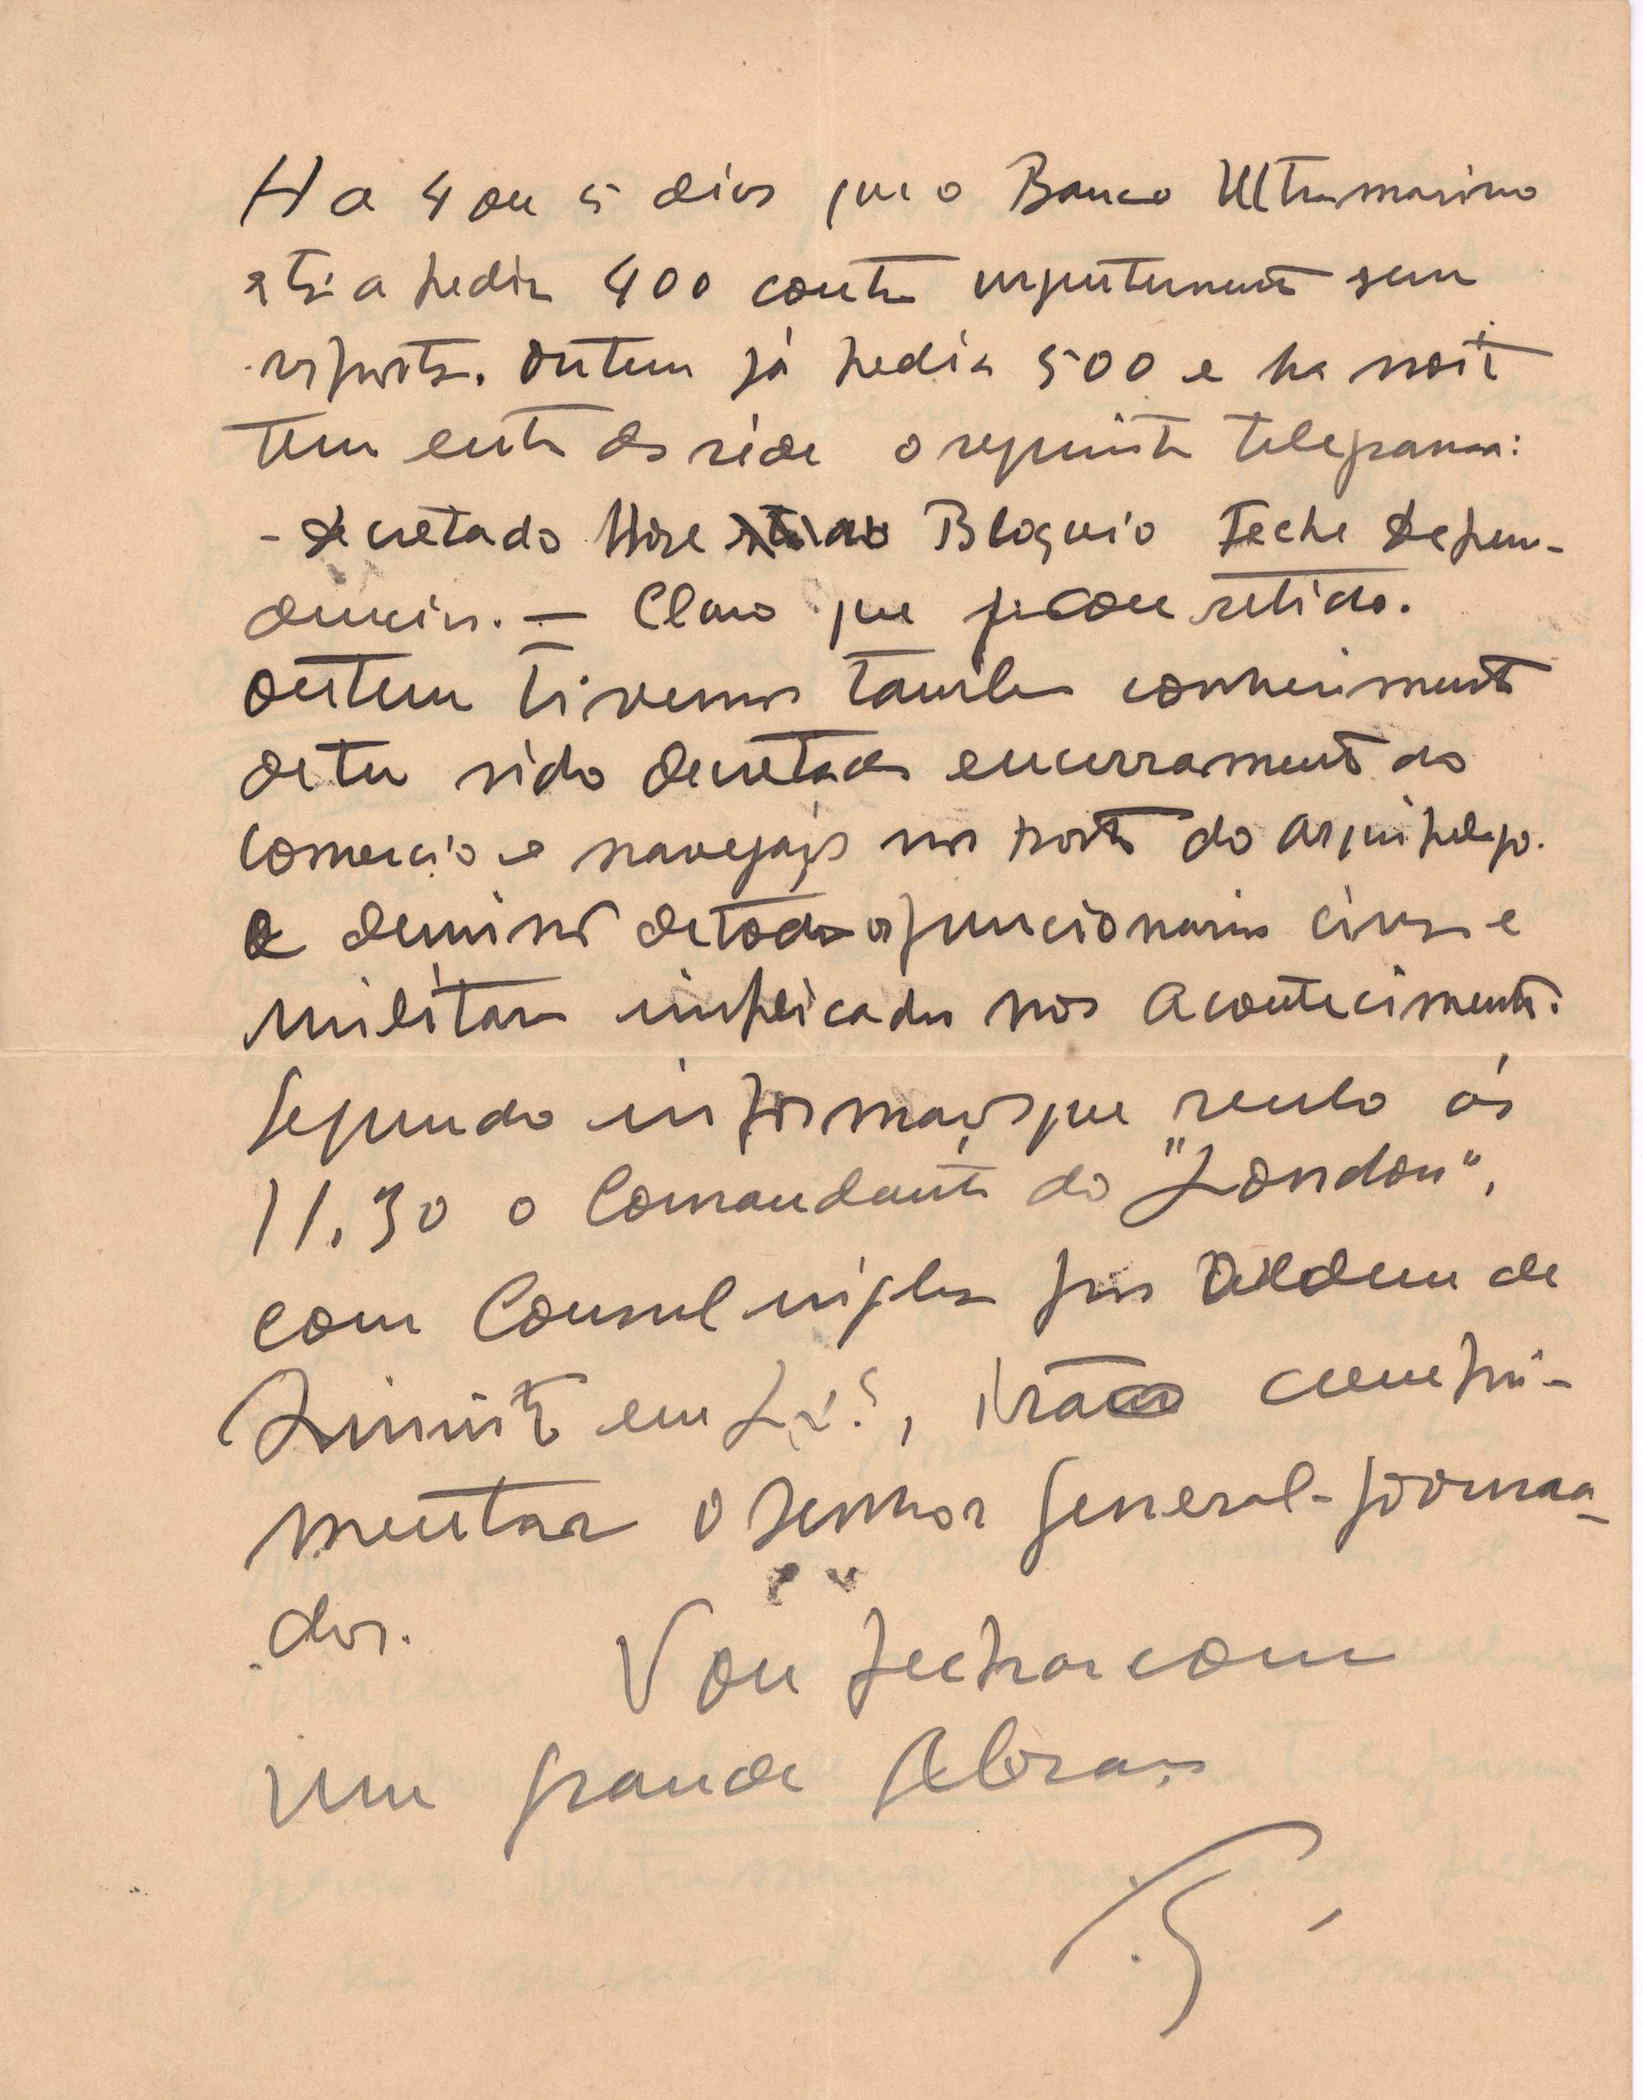 Ha 4 ou 5 dias que o Banco Ultramarino
está a pedir 400 contos urgentemente sem
resposta. Ontem já pedia 500 e ha noite
tem então da séde o seguinte telegrama:
- Decretado Hoje Bloqueio Feche Depen-
dencia. — Claro que ficou retido.
Ontem tivemos tambem conhecimento
de ter sido decretado encerramento do
comercio e navegação nos portos do arquipelago.
e demissão de todos os funcionarios civis e
militares implicados nos acontecimentos.
Segundo informação que tenho ás
11,30 o Comandante do "London",
com Consul inglez por ordem de
Ministro em Lx.ª, irão cumpri-
mentar o Senhor General-Governa-
dor.
Vou fechar com
um grande Abraço